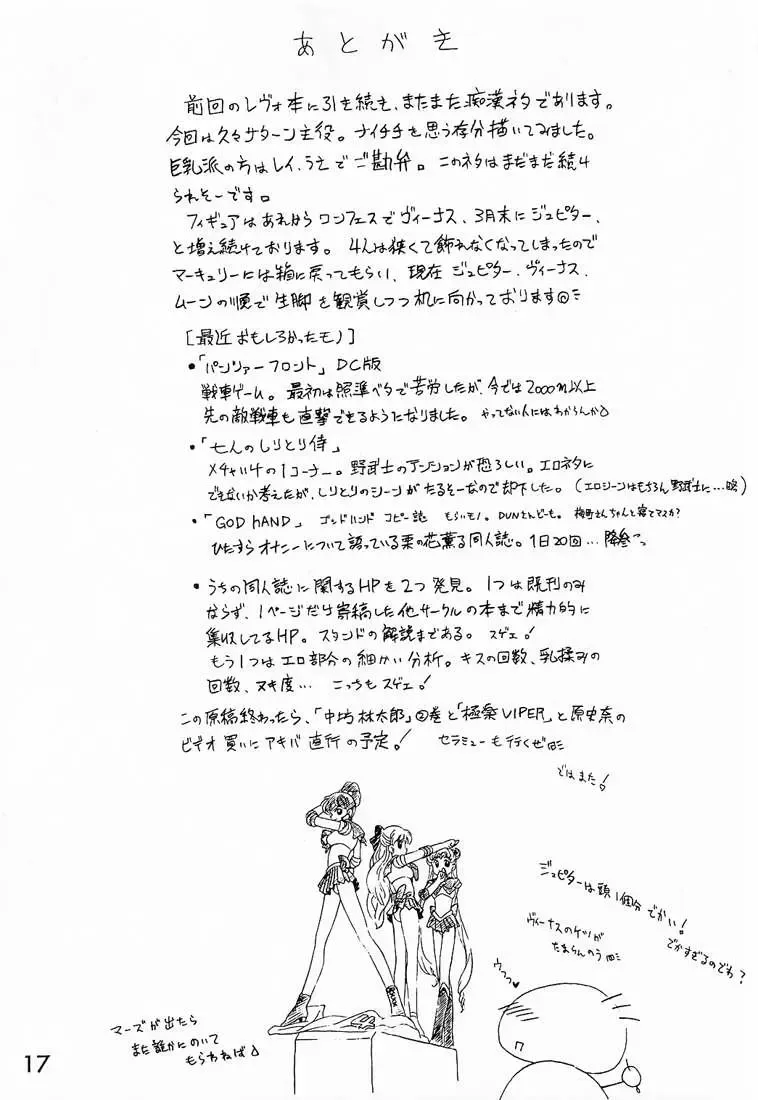 あとがき
前回のレヴォ本に引き続き、またまた痴漢ネタであります。
今回は久々サターン主役。ナイチチを思う存分描いてみました。
巨乳派の方はレイ、うえでご勘弁。このネタはまだまだ続け
られそーです。
フィギュアはあれからワンフェスでヴィーナス、3月末にジュピター、
と増え続けております。4人は狭くて飾れなくなってしまったので
マーキュリーには箱に戻ってもらい、現在ジュピター、ヴィーナス、
ムーンの順で生脚を観賞しつつ机に向かっております
[最近おもしろかったモノ]
・「パンツァーフロント」DC版
戦車ゲーム。最初は照準ベタで苦労したが、今では2000m以上
先の敵戦車も直撃できるようになりました。やってない人にはわからんか
・「七人のしりとり侍」
メチャイケの1コーナー。野武士のテンションが恐ろしい。エロネタに
できないか考えたが、しりとりのシーンがたるそーなので却下した。(エロシーンはもちろん野武士に…略)
・「GOD HAND」ゴッドハンド コピー誌 もらいモノ。DUNさんどーも。梅町さんちゃんと寝てマスか?
ひたすらオナニーについて語っている栗の花薫る同人誌。1日20回…降参
・うちの同人誌に関するHPを2つ発見。1つは既刊のみ
ならず、1ページだけ寄稿した他サークルの本まで精力的に
集収してるHP。スタンドの解説まである。スゲェ!
もう1つはエロ部分の細かい分析。キスの回数、乳揉みの
回数、ヌキ度… こっちもスゲェ!
この原稿終わったら、「中坊林太郎」②巻と「極楽VIPER」と原史奈の
ビデオ買いにアキバ直行の予定!セラミューも行くぜ
ではまた!
ジュピターは頭1個分でかい!
でかすぎるのでわ?
ヴィーナスのケツが
たまらんのう
ウっっ
マーズが出たら
また誰かにのいて
もらわねば
17